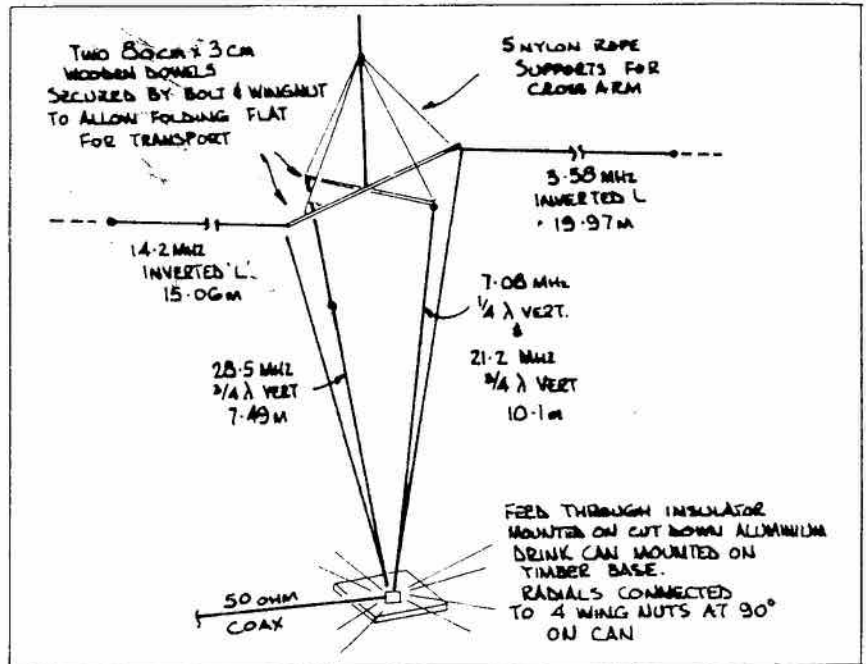 TWO 80CM x 3CM
WOODEN DOWELS
SECURED BY BOLT & WINGNUT
TO ALLOW FOLDING FLAT
FOR TRANSPORT
5 NYLON ROPE
SUPPORTS FOR
CROSS ARM
3.58 MHZ
INVERTED L
19.97 M
14.2 MHZ
INVERTED 'L'
15.06 M
7.08 MHZ
1/4 λ VERT.
&
21.2 MHZ
3/4 λ VERT
10.1 M
28.5 MHZ
3/4 λ VERT
7.49 M
FEED THROUGH INSULATOR
MOUNTED ON CUT DOWN ALUMINIUM
DRINK CAN MOUNTED ON
TIMBER BASE.
RADIALS CONNECTED
TO 4 WING NUTS AT 90°
ON CAN
50 OHM
COAX